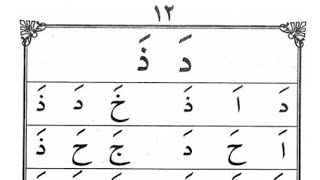 ١٢
دَ ذَ
دَ اَ ذَ خَ دَ ذَ
اَ حَ دَ جَ حَ ذَ